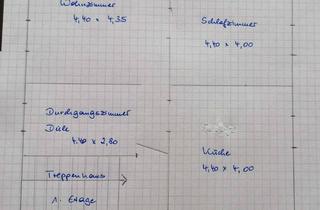 Wohnzimmer
4,40 x 4,35
Schlafzimmer
4,40 x 4,00
Durchgangszimmer
Diele
4.40 x 2,80
Küche
4,40 x 4,00
Treppenhaus
1. Etage